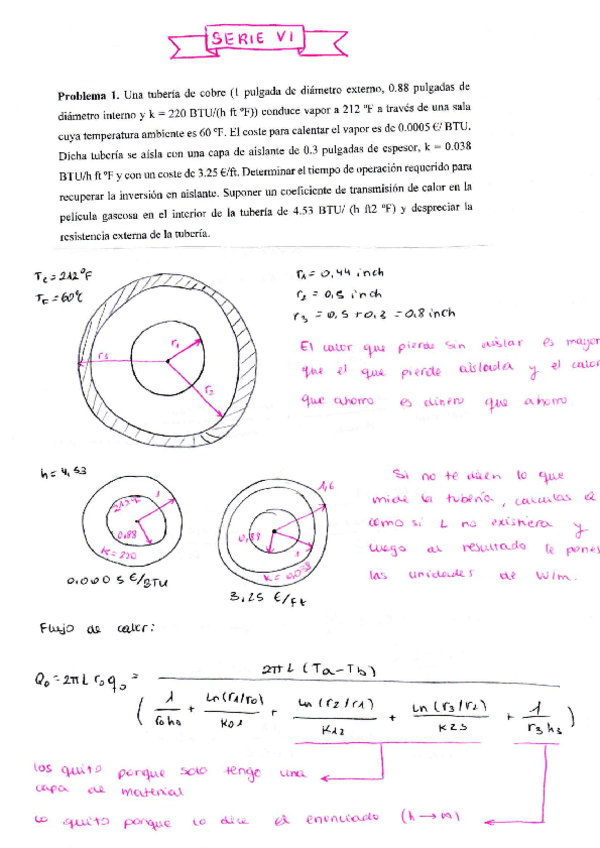 SERIE VI
Problema 1. Una tubería de cobre (1 pulgada de diámetro externo, 0.88 pulgadas de
diámetro interno y k = 220 BTU/(h ft ºF)) conduce vapor a 212 ºF a través de una sala
cuya temperatura ambiente es 60 ºF. El coste para calentar el vapor es de 0.0005 €/ BTU.
Dicha tubería se aísla con una capa de aislante de 0.3 pulgadas de espesor, k = 0.038
BTU/h ft ºF y con un coste de 3.25 €/ft. Determinar el tiempo de operación requerido para
recuperar la inversión en aislante. Suponer un coeficiente de transmisión de calor en la
película gaseosa en el interior de la tubería de 4.53 BTU/ (h ft2 ºF) y despreciar la
resistencia externa de la tubería.
Tc = 212 ºF
TF = 60ºC
r1
r2
r3
r1 = 0,44 inch
r2 = 0,5 inch
r3 = 0,5 + 0,3 = 0,8 inch
El calor que pierde sin aislar es mayor
que el que pierde aislada y el calor
que ahorro es dinero que ahorro
h = 4,53
1
0,88
k = 220
0,0005 €/BTU
1,6
0,88
1
k = 0,038
3,25 €/Ft
Si no te dicen lo que
mide la tubería, calculas Q
como si L no existiera y
luego al resultado le pones
las unidades de W/m.
Flujo de calor:
Q0 = 2π L r0 q0 = 2π L (Ta - Tb)
( 1/r0h0 + Ln(r1/r0)/K01 + Ln(r2/r1)/K12 + Ln(r3/r2)/K23 + 1/r3h3 )
los quito porque solo tengo una
capa de material
lo quito porque lo dice el enunciado (h → ∞)